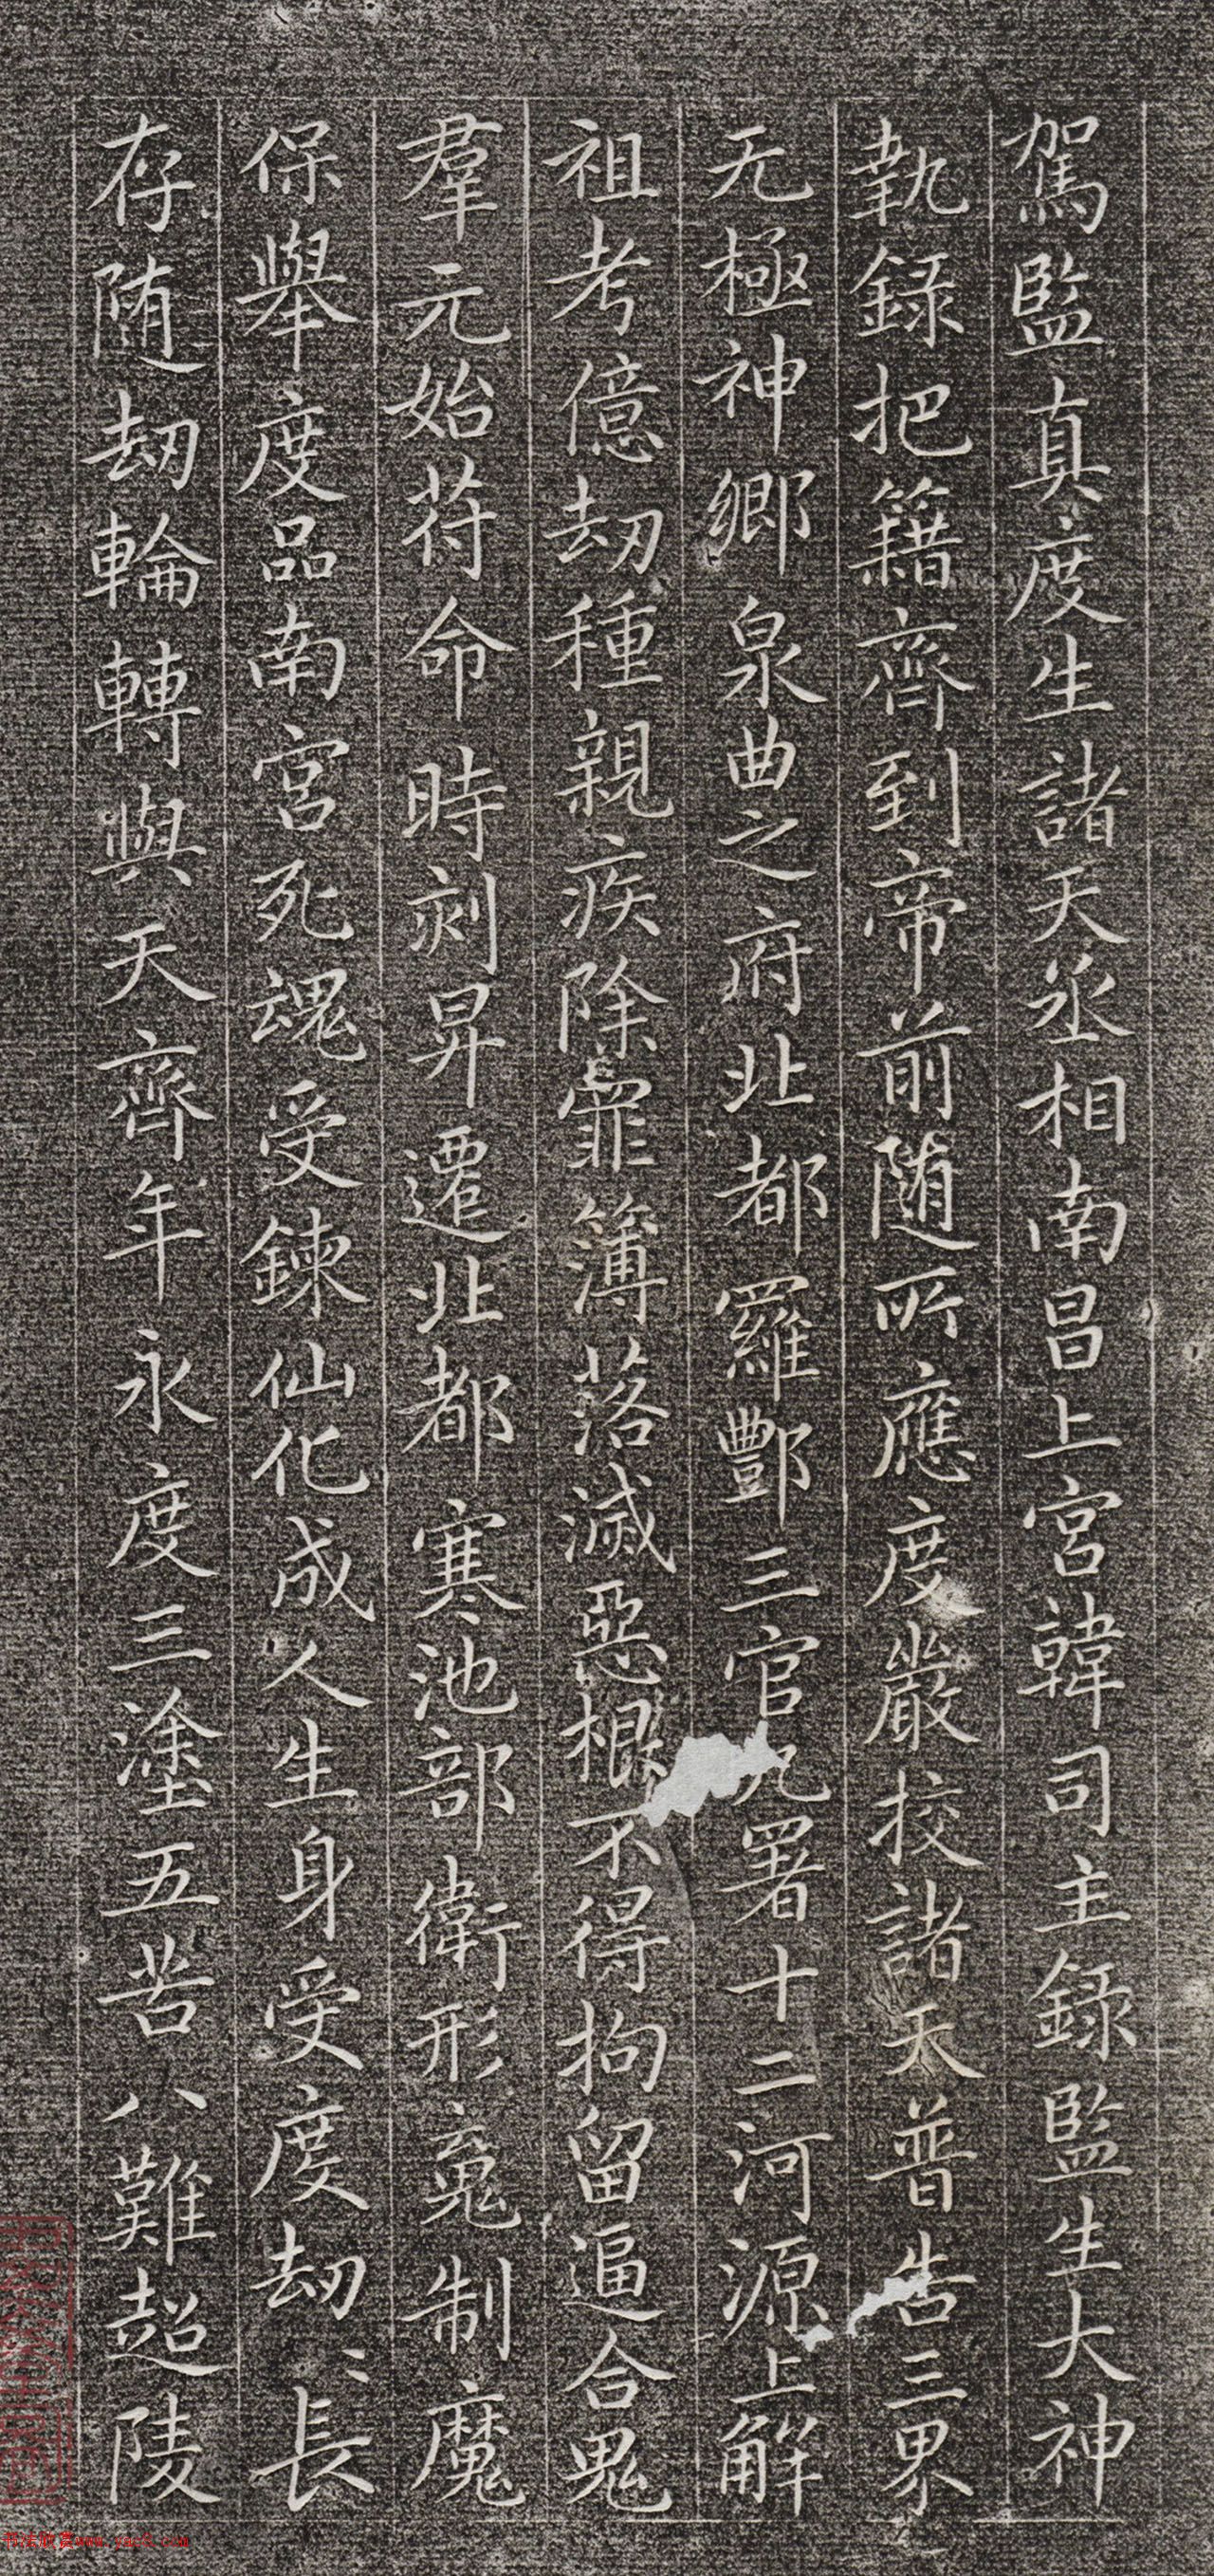 駕監真度生諸天丞相南昌上宮韓司主錄監生大神
執錄把籍齊到帝前随所應度嚴校諸天普告三界
无極神鄉泉曲之府北都羅酆三官九署十二河源上解
祖考億劫種親疾除罪簿落滅惡根不得拘留逼合鬼
羣元始苻命時刻昇遷北都寒池部衛形䰟制魔
保舉度品南宮死魂受鍊仙化成人生身受度劫〻長
存随劫輪轉與天齊年永度三塗五苦八難超陵